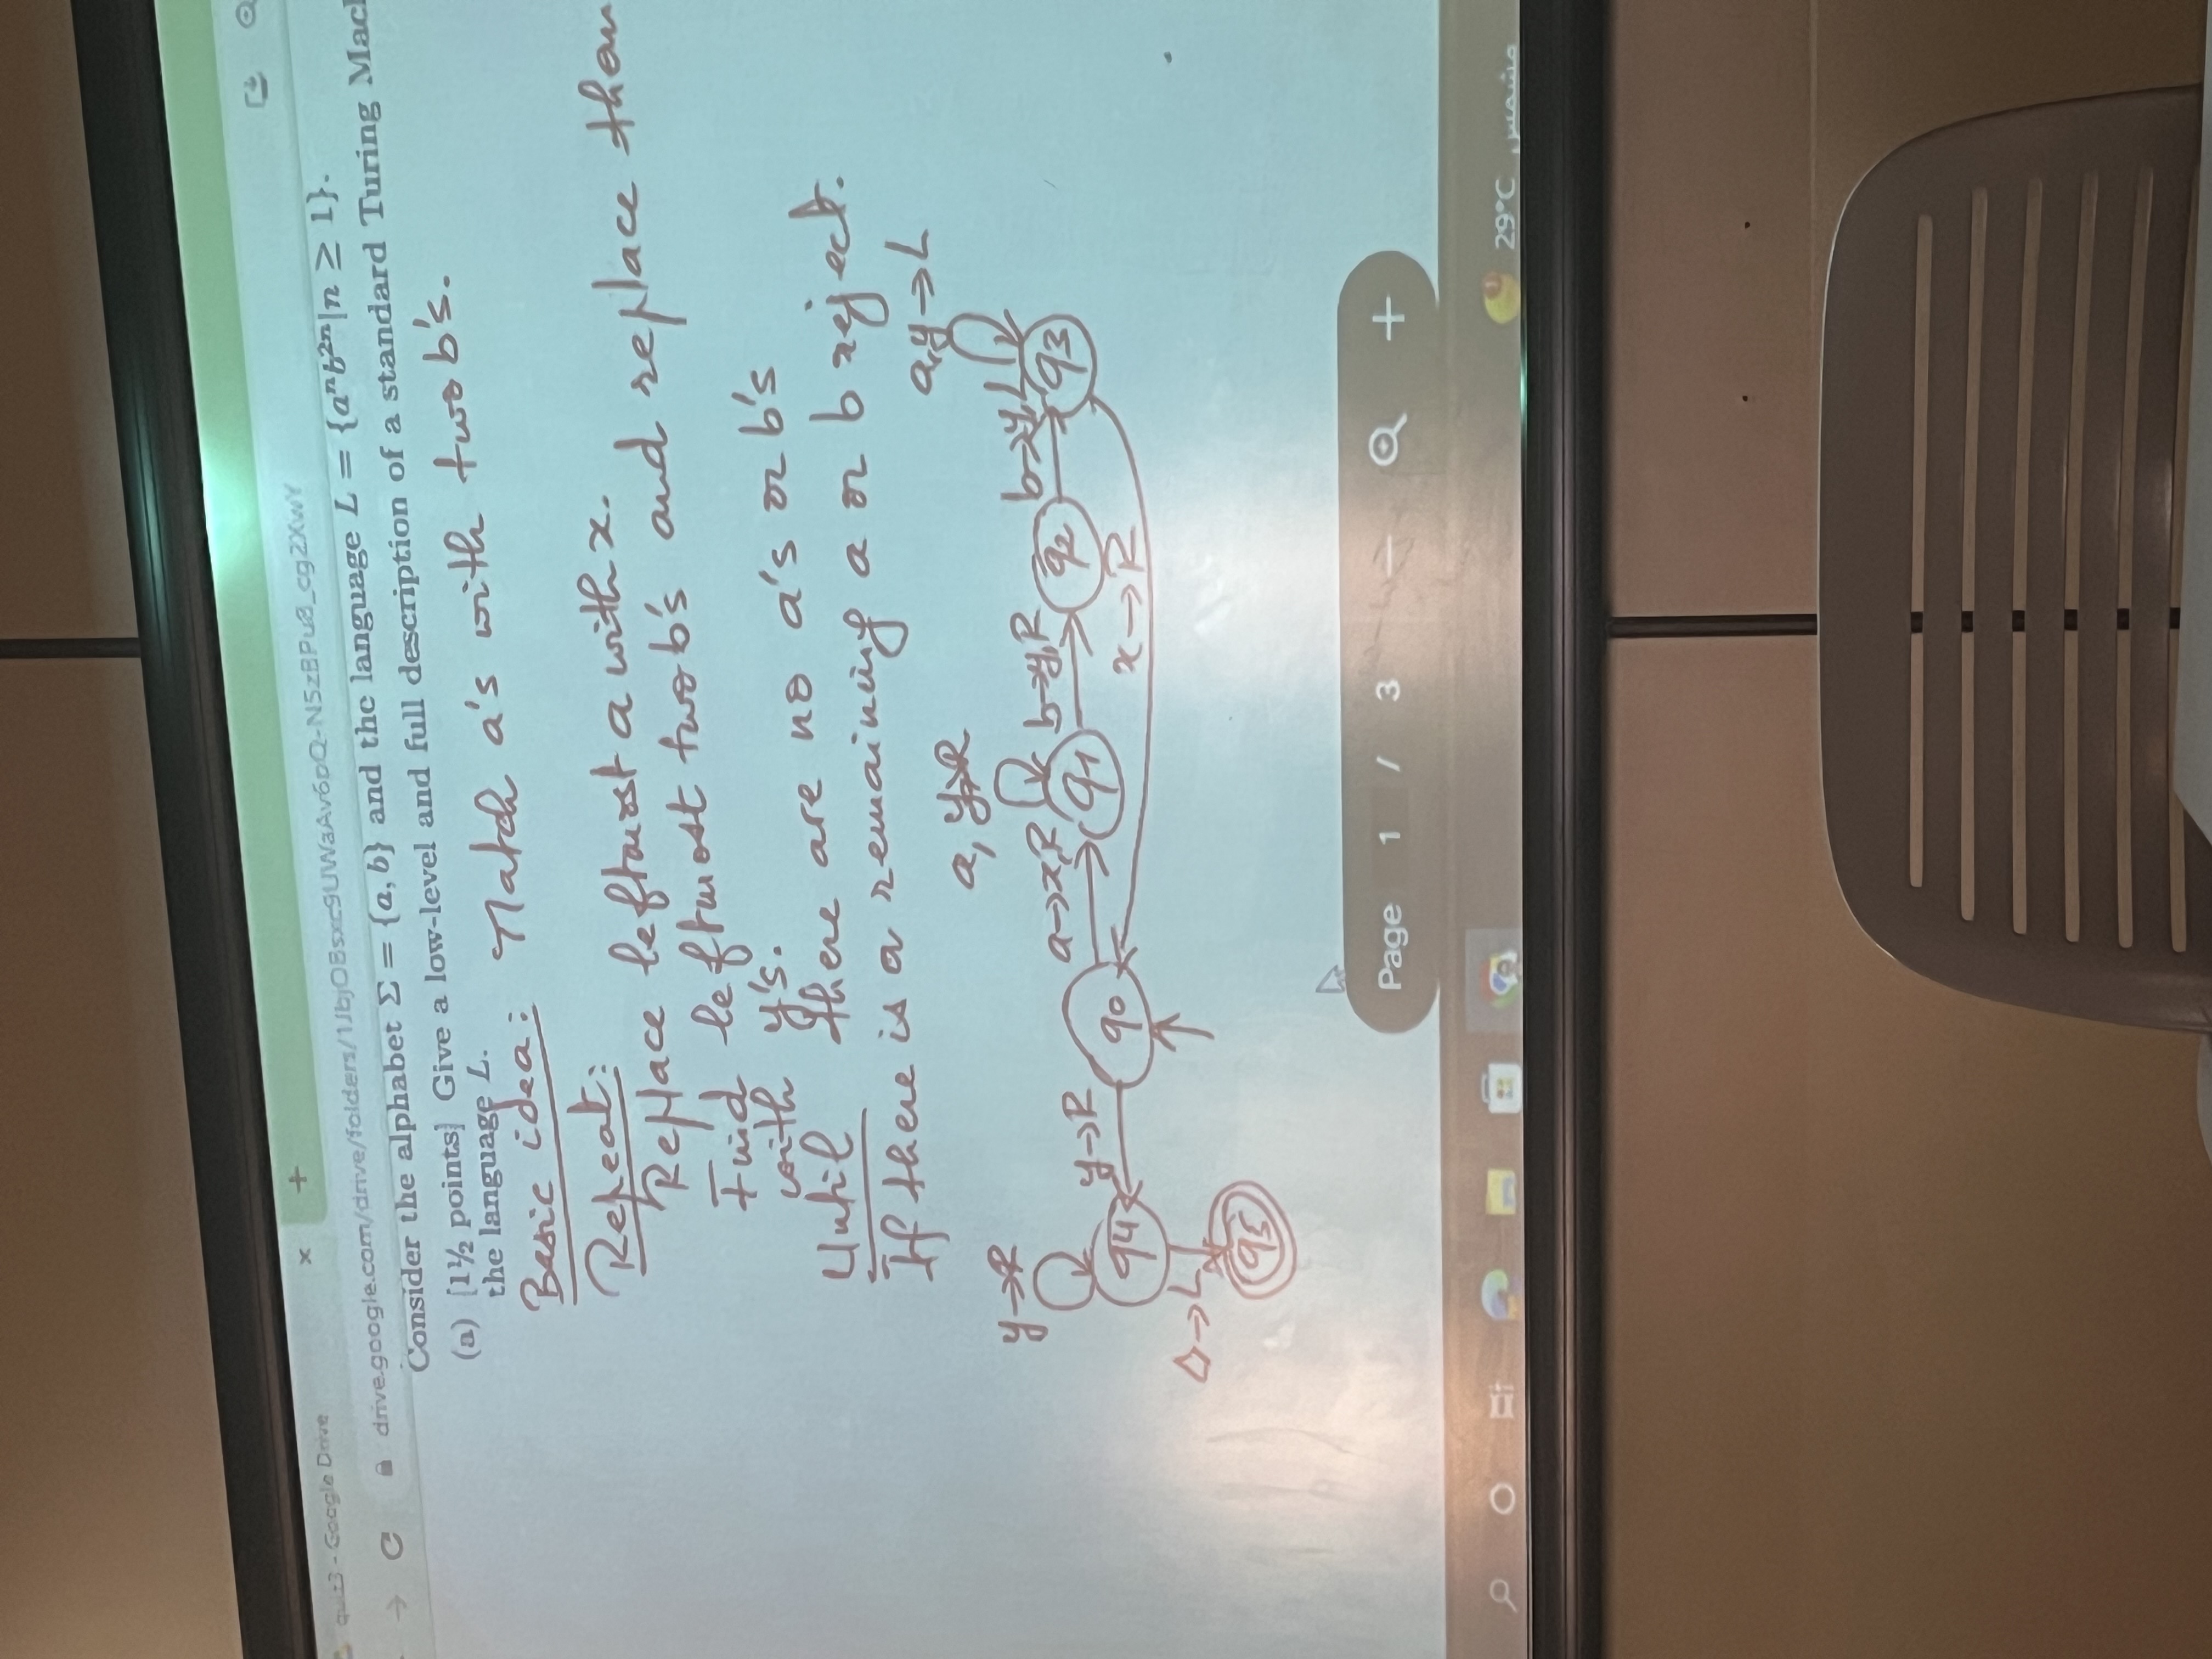 quiz3 - Google Drive
drive.google.com/drive/folders/1JbjOBsxc9UWaAv6pQ-N5zBPu8_cg2XwY
Consider the alphabet Σ = {a, b} and the language L = {aⁿb²ⁿ|n ≥ 1}.
(a) [1½ points] Give a low-level and full description of a standard Turing Mach
the language L.
Basic idea: Match a's with two b's.
Repeat:
Replace leftmost a with x.
Find leftmost two b's and replace them
with y's.
Until there are no a's or b's
If there is a remaining a or b reject.
a,y→L
a, y→R
y→R
b→y,L
b→y,R
a→x,R
y→R
q3
q2
q1
q0
q4
x→R
◇→L
q5
Page 1 / 3
29°C مشمس